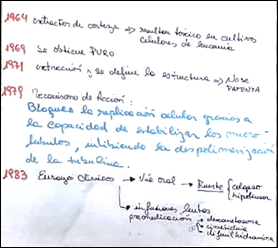 1964 extractos de corteza → resultan tóxico en cultivos
celulares de leucemia
1969 Se obtiene PURO
1971 extracción y se define la estructura → NO SE
PATENTA
1979 Mecanismo de Acción:
Bloquea la replicación celular gracias a
la capacidad de estabilizar los micro-
túbulos, inhibiendo la despolimerización
de la tubulina.
1983 Ensayo Clínicos → Vía oral → Muerte colapso
hipotensor
→ infusiones lentas
premedicación → dexametasona
cimetidina
difenhidramina